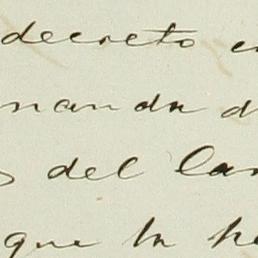 decreto
nanda d
del lan
que la h